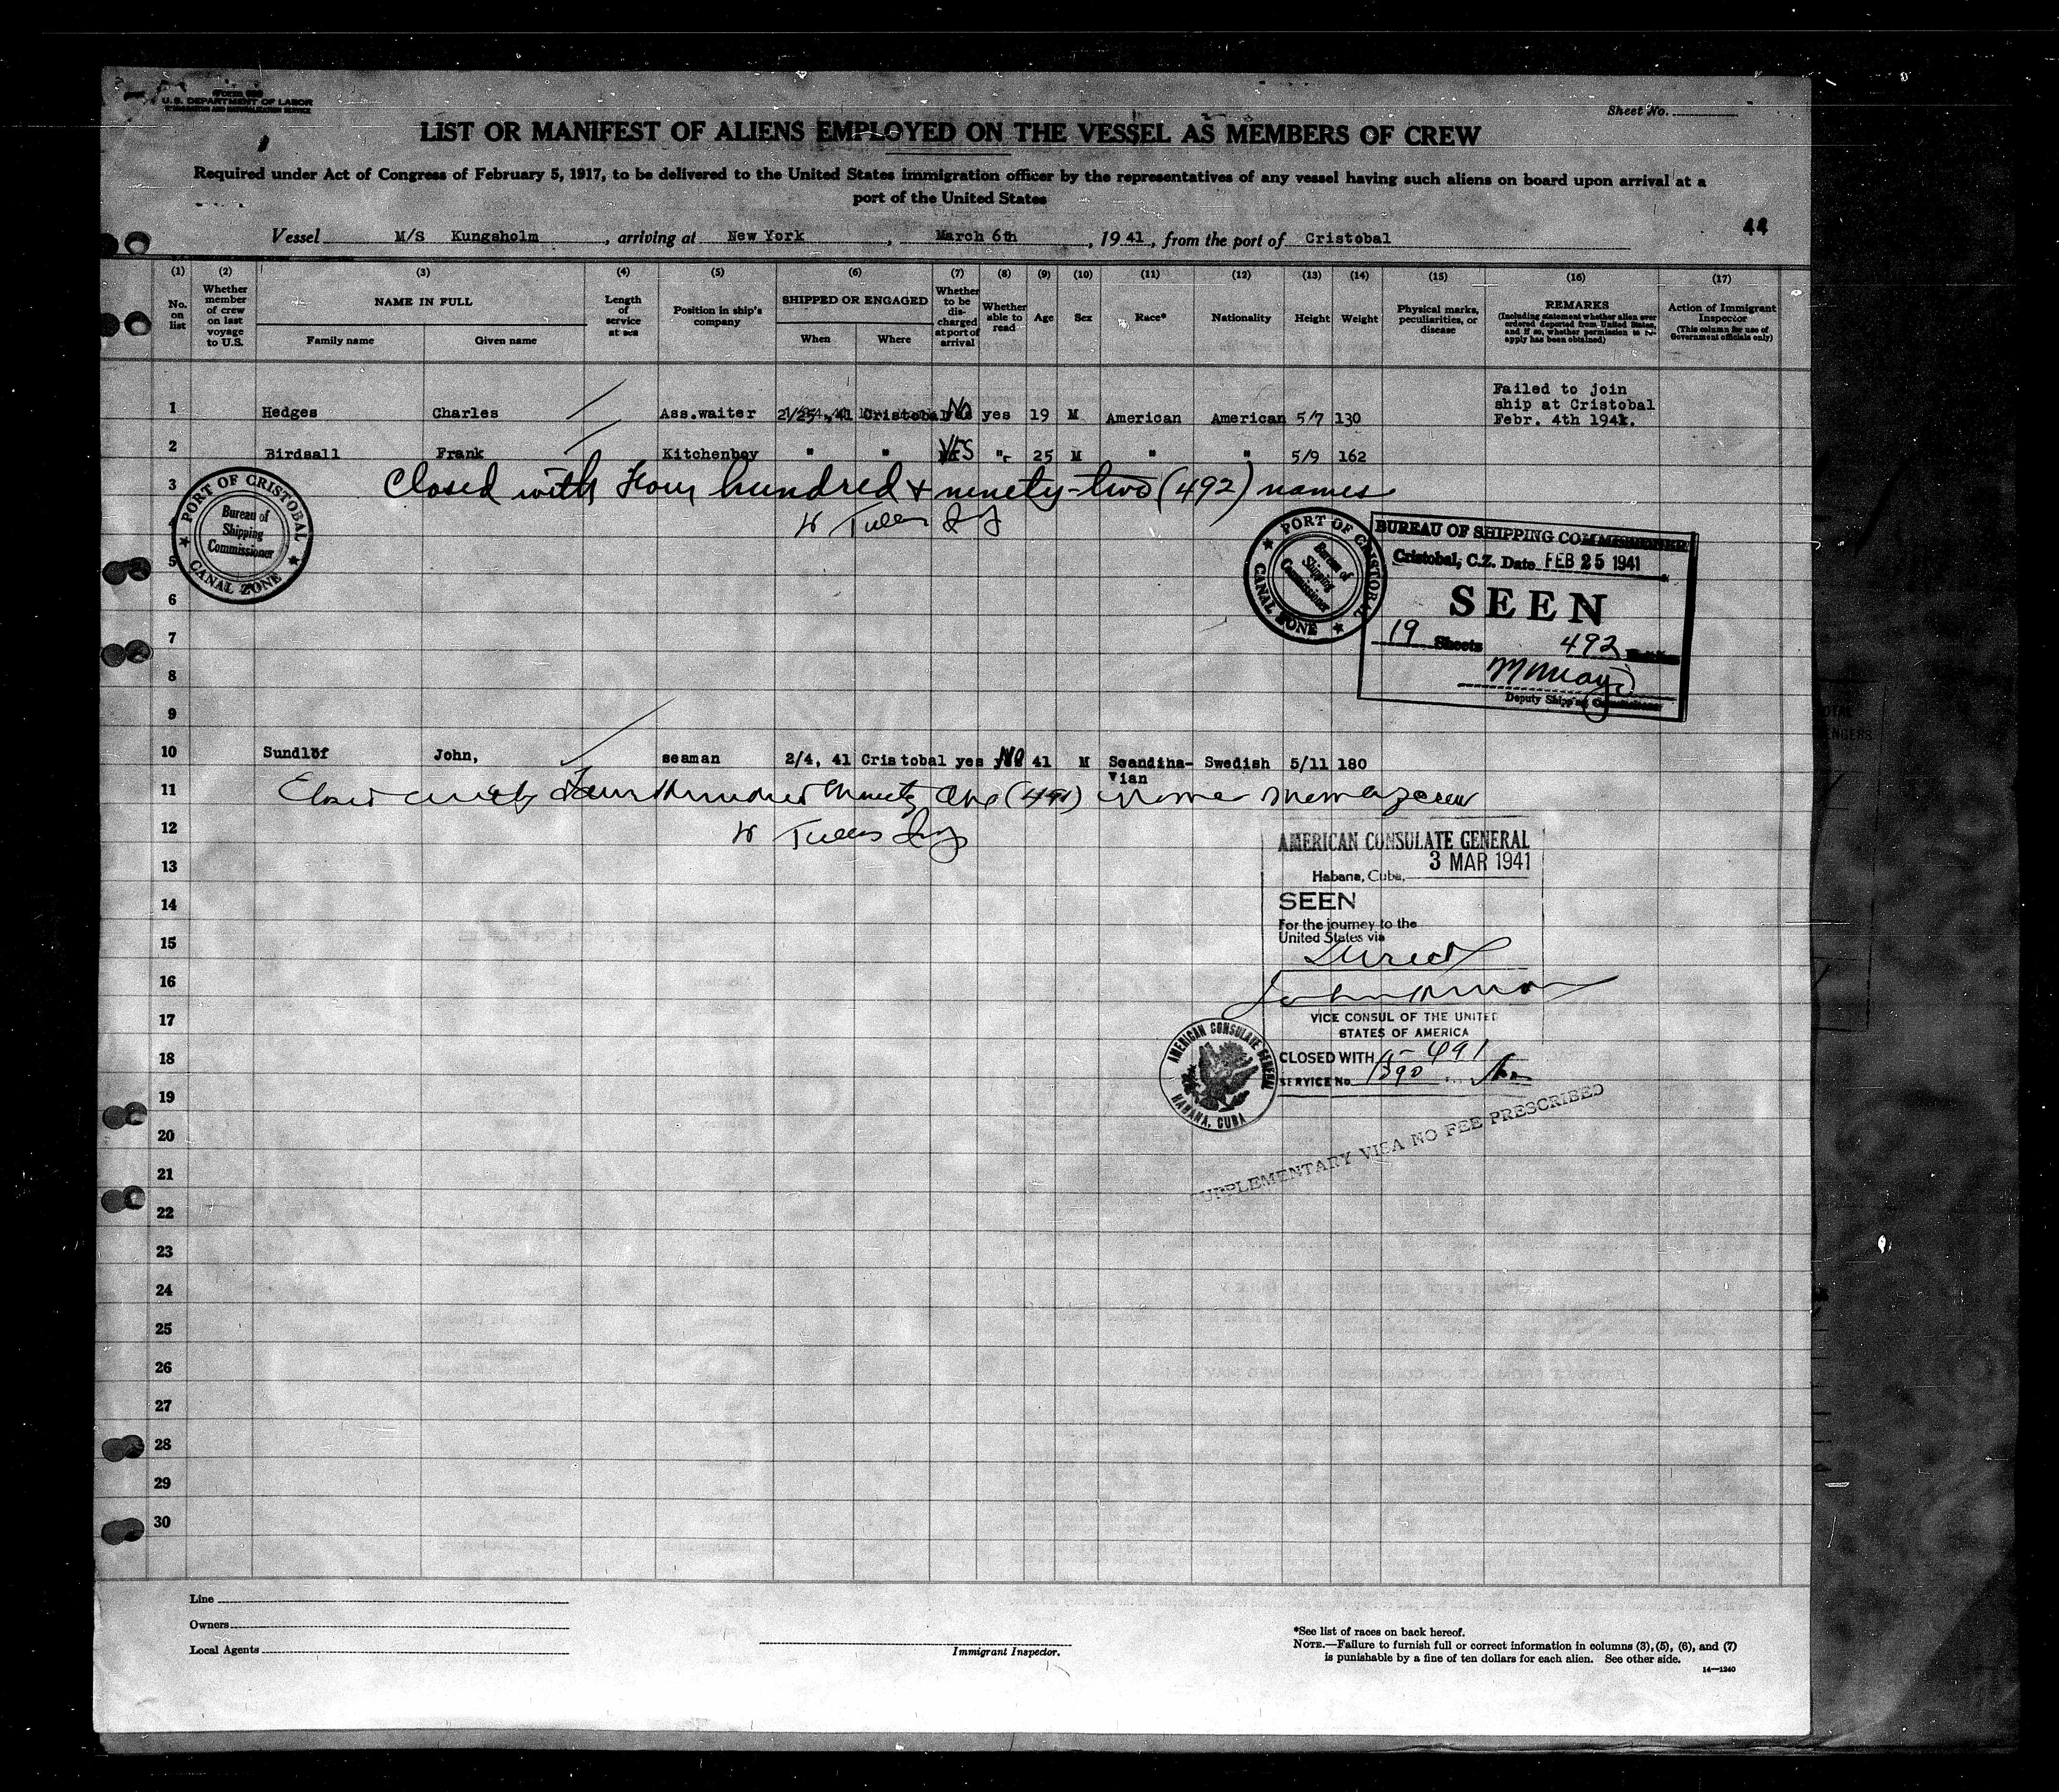 U.S. DEPARTMENT OF LABOR
IMMIGRATION AND NATURALIZATION SERVICE
Sheet No.
LIST OR MANIFEST OF ALIENS EMPLOYED ON THE VESSEL AS MEMBERS OF CREW
Required under Act of Congress of February 5, 1917, to be delivered to the United States immigration officer by the representatives of any vessel having such aliens on board upon arrival at a
port of the United States
44
Vessel M/S Kungsholm, arriving at New York, March 6th, 1941, from the port of Cristobal
(1) (2) (3) (4) (5) (6) (7) (8) (9) (10) (11) (12) (13) (14) (15) (16) (17)
No. on list
Whether member of crew on last voyage to U.S.
NAME IN FULL
Family name
Given name
Length of service at sea
Position in ship's company
SHIPPED OR ENGAGED
When
Where
Whether to be discharged at port of arrival
Whether able to read
Age
Sex
Race*
Nationality
Height
Weight
Physical marks, peculiarities, or disease
REMARKS
(Including statement whether alien ever ordered deported from United States, and if so, whether permission to re-apply has been obtained)
Action of Immigrant Inspector
(This column for use of Government officials only)
1 Hedges Charles Ass.waiter 2/25, 41 Cristobal No yes 19 M American American 5/7 130 Failed to join
ship at Cristobal
Febr. 4th 1941.
2 Birdsall Frank Kitchenboy " " YES " 25 M " " 5/9 162
3 Closed with Four hundred & ninety-two (492) names
PORT OF CRISTOBAL
Bureau of Shipping Commissioner
CANAL ZONE
PORT OF CRISTOBAL
Bureau of Shipping Commissioner
CANAL ZONE
BUREAU OF SHIPPING COMMISSIONER
Cristobal, C.Z. Date FEB 25 1941
SEEN
19 Sheets 492
Deputy Shipping Commissioner
4
5
6
7
8
9
10 Sundlöf John, seaman 2/4, 41 Cristobal yes NO 41 M Scandina- Swedish 5/11 180
vian
11 Four Hundred Ninety One (491)
12
13
14
15
16
17
18
19
20
21
22
23
24
25
26
27
28
29
30
AMERICAN CONSULATE GENERAL
3 MAR 1941
Habana, Cuba,
SEEN
For the journey to the
United States via
Direct
VICE CONSUL OF THE UNITED
STATES OF AMERICA
CLOSED WITH 491
SERVICE No. 1390
AMERICAN CONSULATE GENERAL
HABANA, CUBA
SUPPLEMENTARY VISA NO FEE PRESCRIBED
Line
Owners
Local Agents
Immigrant Inspector.
*See list of races on back hereof.
NOTE.—Failure to furnish full or correct information in columns (3), (5), (6), and (7)
is punishable by a fine of ten dollars for each alien. See other side.
14—1240